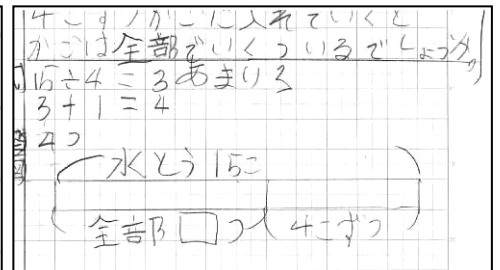 4こずつかごに入れていくと
かごは全部でいくついるでしょうか。
15÷4=3あまり3
3+1=4
4つ
水とう15こ
全部□つ 4こずつ